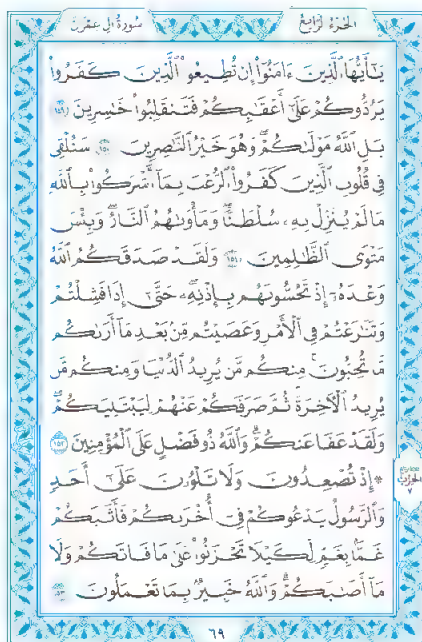 الجزء الرابع
سورة آل عمران
يَـٰٓأَيُّهَا ٱلَّذِينَ ءَامَنُوٓاْ إِن تُطِيعُواْ ٱلَّذِينَ كَفَرُواْ
يَرُدُّوكُمْ عَلَىٰٓ أَعْقَـٰبِكُمْ فَتَنقَلِبُواْ خَـٰسِرِينَ ١٤٩
بَلِ ٱللَّهُ مَوْلَىٰكُمْ ۖ وَهُوَ خَيْرُ ٱلنَّـٰصِرِينَ ١٥٠ سَنُلْقِى
فِى قُلُوبِ ٱلَّذِينَ كَفَرُواْ ٱلرُّعْبَ بِمَآ أَشْرَكُواْ بِٱللَّهِ
مَا لَمْ يُنَزِّلْ بِهِۦ سُلْطَـٰنًا ۖ وَمَأْوَىٰهُمُ ٱلنَّارُ ۚ وَبِئْسَ
مَثْوَى ٱلظَّـٰلِمِينَ ١٥١ وَلَقَدْ صَدَقَكُمُ ٱللَّهُ
وَعْدَهُۥٓ إِذْ تَحُسُّونَهُم بِإِذْنِهِۦ ۖ حَتَّىٰٓ إِذَا فَشِلْتُمْ
وَتَنَـٰزَعْتُمْ فِى ٱلْأَمْرِ وَعَصَيْتُم مِّنۢ بَعْدِ مَآ أَرَىٰكُم
مَّا تُحِبُّونَ ۚ مِنكُم مَّن يُرِيدُ ٱلدُّنْيَا وَمِنكُم مَّن
يُرِيدُ ٱلْـَٔاخِرَةَ ۚ ثُمَّ صَرَفَكُمْ عَنْهُمْ لِيَبْتَلِيَكُمْ ۖ
وَلَقَدْ عَفَا عَنكُمْ ۗ وَٱللَّهُ ذُو فَضْلٍ عَلَى ٱلْمُؤْمِنِينَ ١٥٢
۞ إِذْ تُصْعِدُونَ وَلَا تَلْوُۥنَ عَلَىٰٓ أَحَدٍ
وَٱلرَّسُولُ يَدْعُوكُمْ فِىٓ أُخْرَىٰكُمْ فَأَثَـٰبَكُمْ
غَمًّۢا بِغَمٍّ لِّكَيْلَا تَحْزَنُواْ عَلَىٰ مَا فَاتَكُمْ وَلَا
مَآ أَصَـٰبَكُمْ ۗ وَٱللَّهُ خَبِيرٌۢ بِمَا تَعْمَلُونَ ١٥٣
الحزب
٧
٦٩